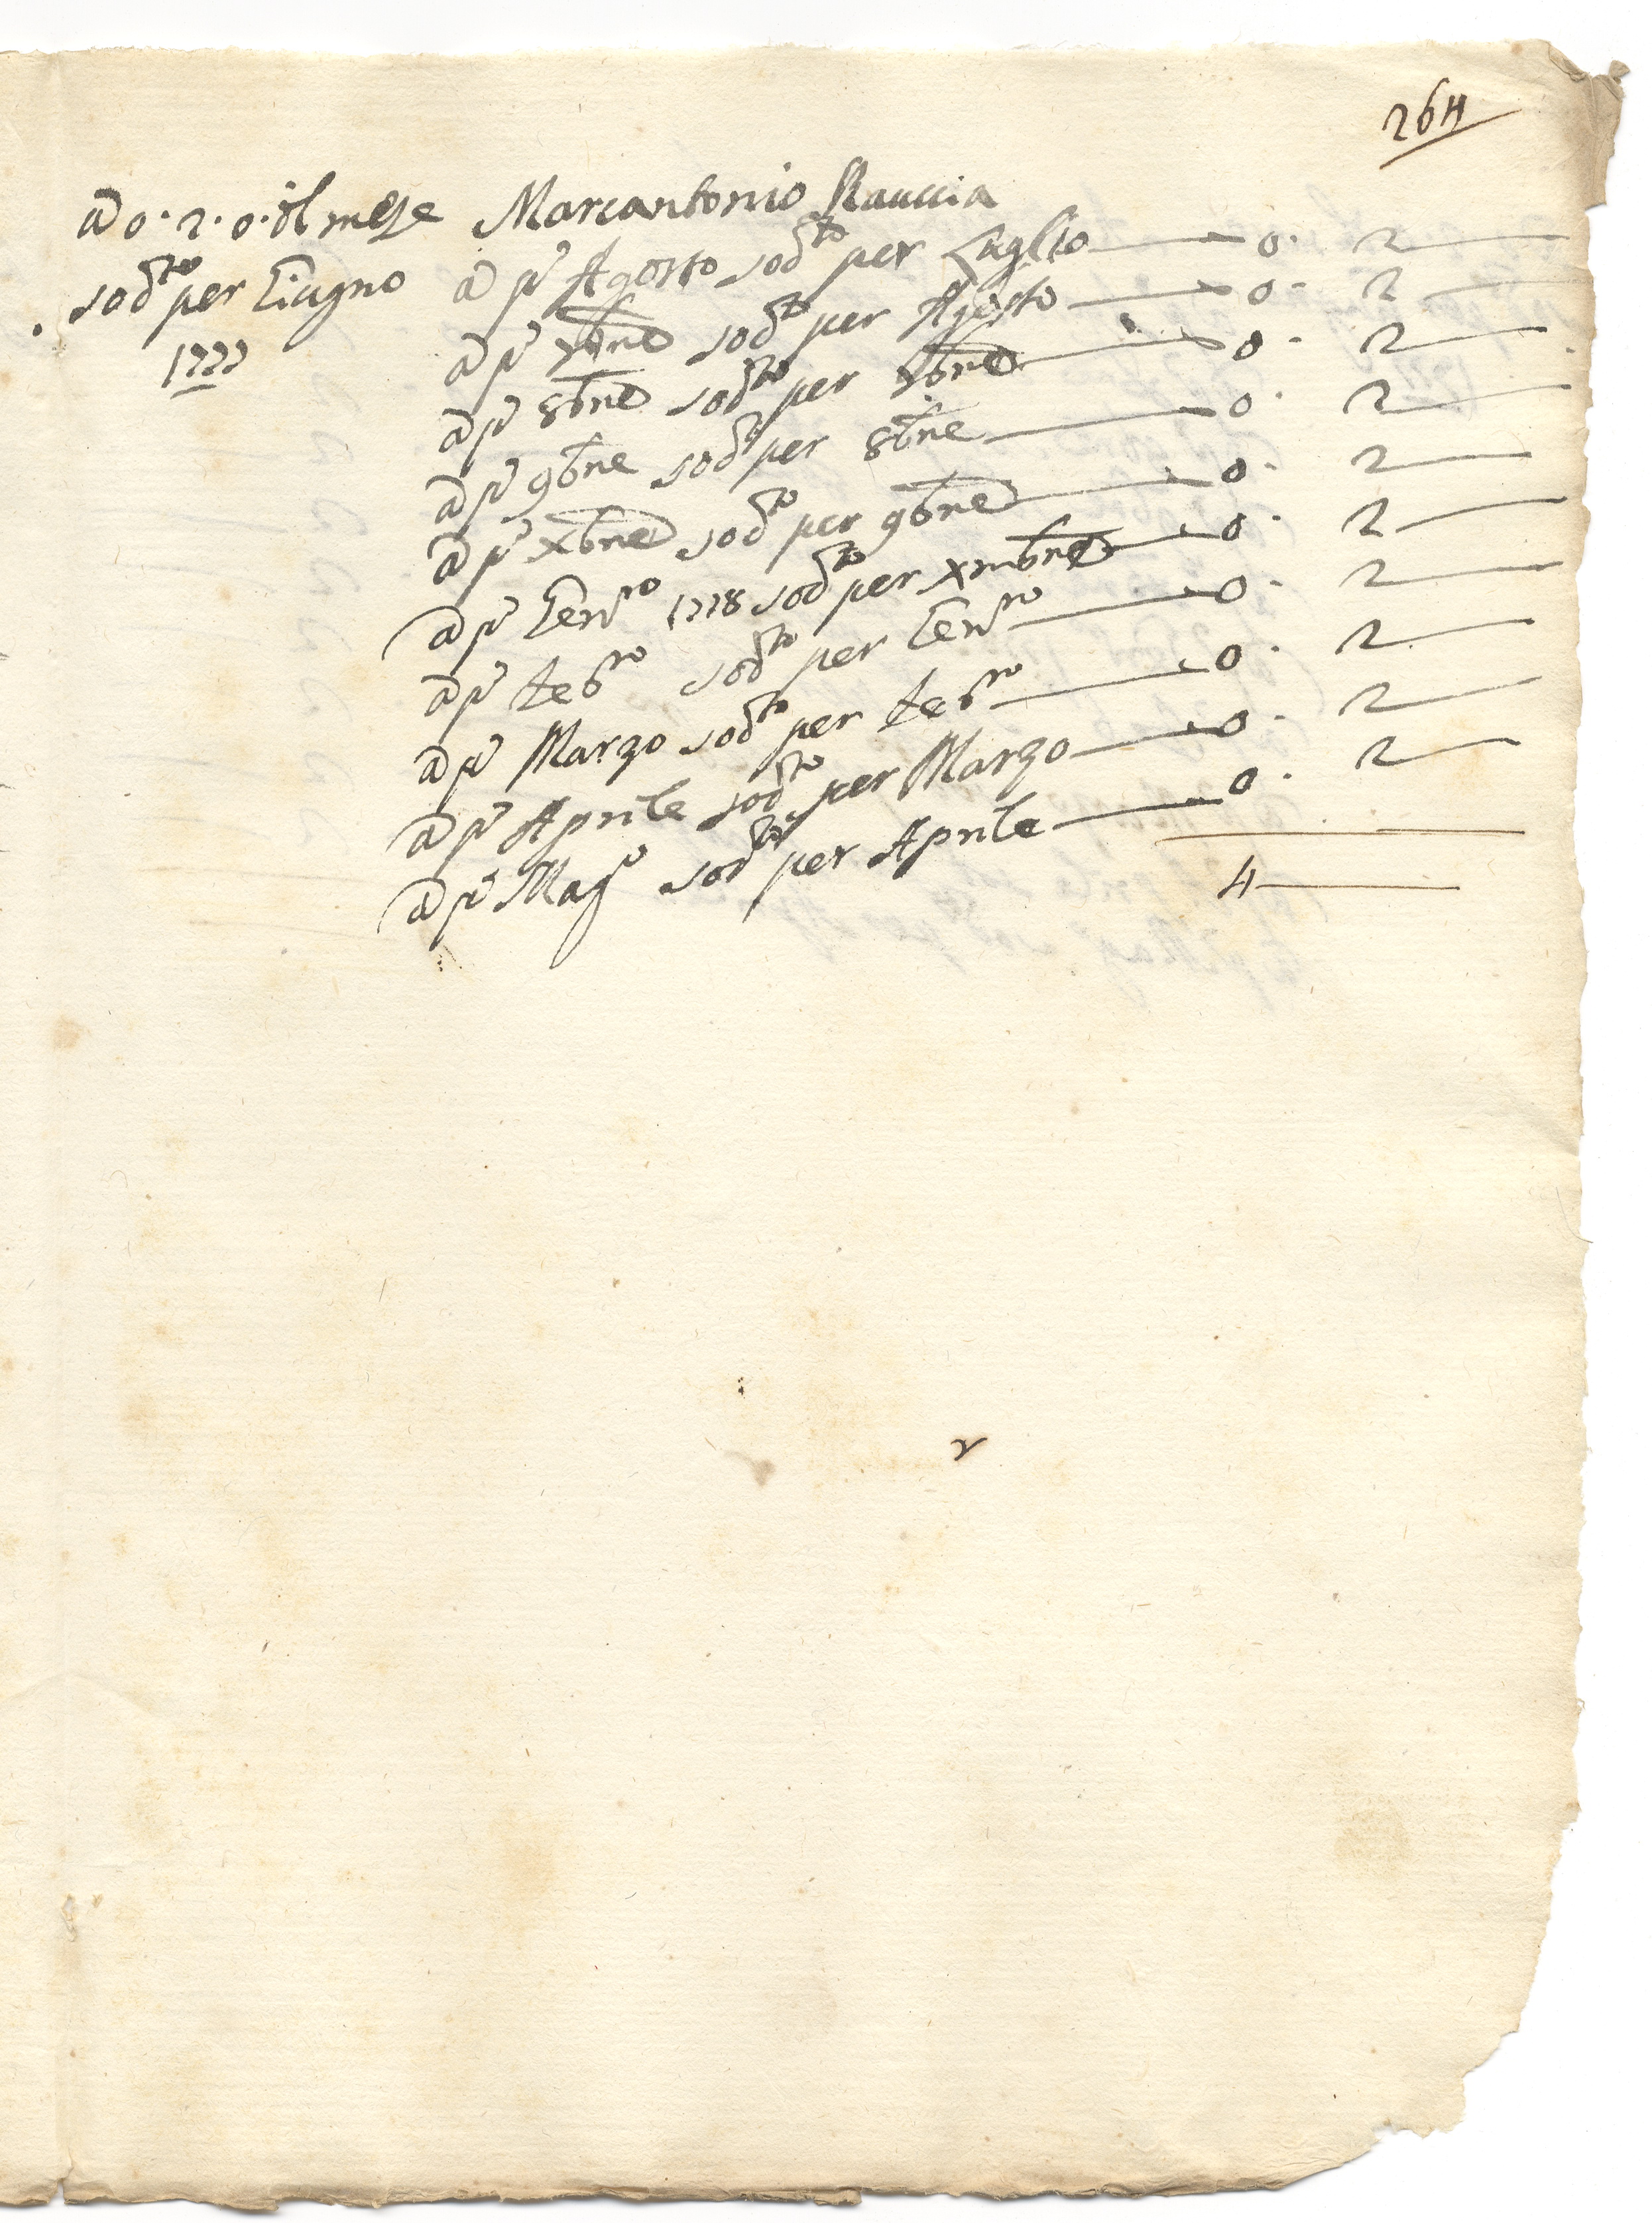 264
a 0·2·0· il mese
sodto per Giugno
1777
Marcantonio Rauccia
a po Agosto sodto per Luglio — 0· 2 —
a po 7bre sodto per Agosto — 0· 2 —
a po 8bre sodto per 7bre — 0· 2 —
a po 9bre sodto per 8bre — 0· 2 —
a po xbre sodto per 9bre — 0· 2 —
a po Genro 1778 sodto per xmbre — 0· 2 —
a po febro sodto per Genro — 0· 2 —
a po Marzo sodto per febro — 0· 2 —
a po Aprile sodto per Marzo — 0· 2 —
a po Mago sodto per Aprile — 0· 2 —
4 —